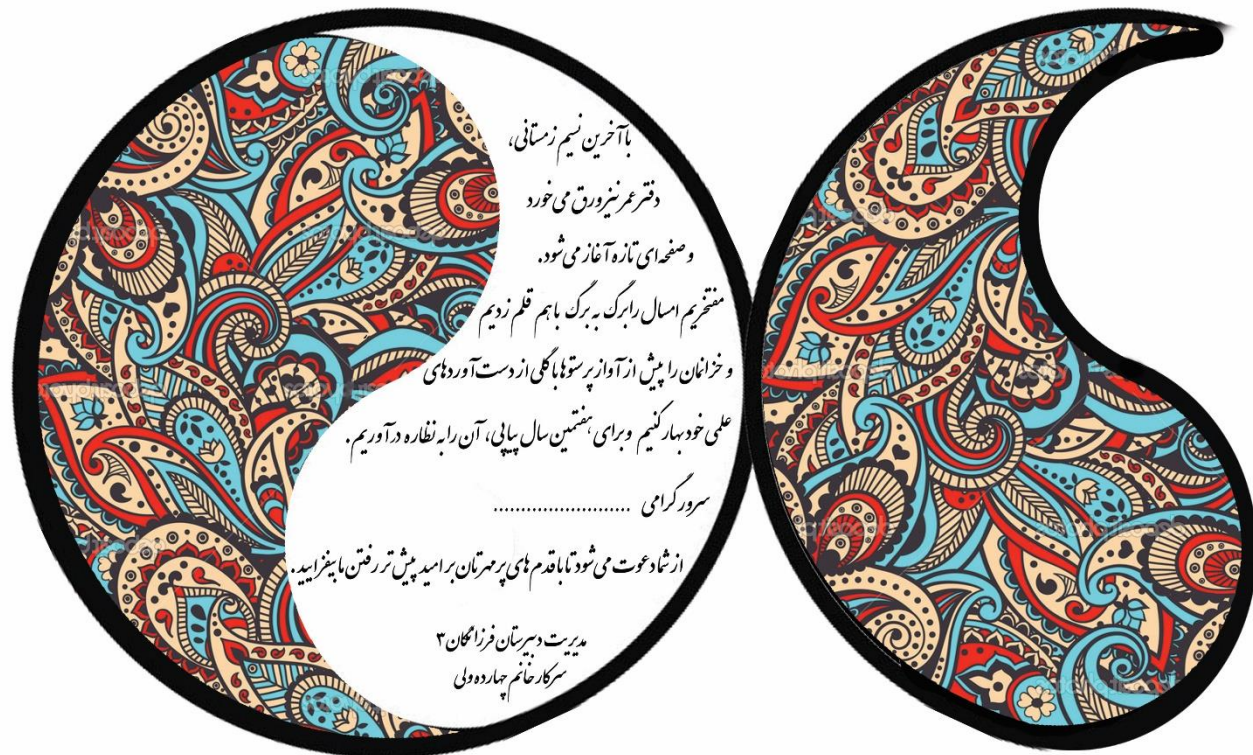 با آخرین نسیم زمستانی،
دفتر عمر نیز ورق می‌خورد
و صفحه‌ای تازه آغاز می‌شود.
مفتخریم امسال را برگ به برگ با هم قلم زدیم
و خزانمان را پیش از آواز پرستوها با گلی از دست‌آوردهای
علمی خود بهار کنیم و برای هفتمین سال پیاپی، آن را به نظاره درآوریم.
سرور گرامی ..........................
از شما دعوت می‌شود تا با قدم‌های پرمهرتان بر امید پیش‌تر رفتن ما بیفزایید.
مدیریت دبیرستان فرزانگان ۳
سرکار خانم چهارده ولی